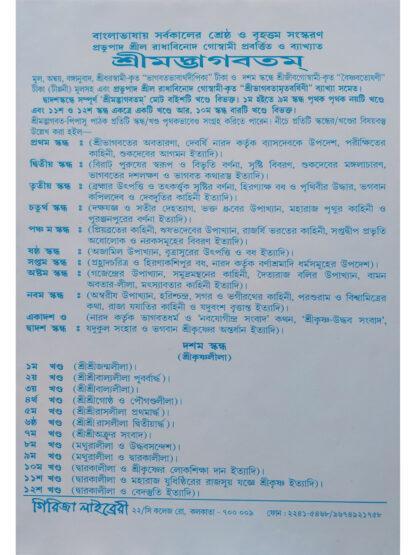 বাংলাভাষায় সর্বকালের শ্রেষ্ঠ ও বৃহত্তম সংস্করণ
প্রভুপাদ শ্রীল রাধাবিনোদ গোস্বামী প্রবর্ত্তিত ও ব্যাখ্যাত
শ্রীমদ্ভাগবতম্
মূল, অন্বয়, বঙ্গানুবাদ, শ্রীধরস্বামী-কৃত "ভাগবতভাবার্থদীপিকা" টীকা ও দশম স্কন্ধে শ্রীজীবগোস্বামী-কৃত "বৈষ্ণবতোষণী"
টীকা (টীপ্পনী) মূলসহ এবং প্রভুপাদ শ্রীল রাধাবিনোদ গোস্বামী-কৃত "শ্রীভাগবতামৃতবর্ষিণী" ব্যাখ্যা সমেত।
দ্বাদশস্কন্ধে সম্পূর্ণ 'শ্রীমদ্ভাগবতম্' মোট বাইশটি খণ্ডে বিভক্ত। ১ম হইতে ৯ম স্কন্ধ পৃথক পৃথক নয়টি খণ্ডে
এবং ১১শ ও ১২শ স্কন্ধ একত্রে একটি খণ্ডে আর, ১০ম স্কন্ধ বারটি খণ্ডে বিভক্ত।
শ্রীমদ্ভাগবত-পিপাসু পাঠক প্রতিটি স্কন্ধ/খণ্ড পৃথকভাবেও সংগ্রহ করিতে পারেন। নীচে প্রতিটি স্কন্ধের/খণ্ডের বিষয়বস্তু
উল্লেখ করা হইল—
প্রথম স্কন্ধ : (শ্রীভাগবতের অবতারণা, দেবর্ষি নারদ কর্তৃক ব্যাসদেবকে উপদেশ, পরীক্ষিতের
কাহিনী, শুকদেবের আগমন ইত্যাদি)।
দ্বিতীয় স্কন্ধ : (বিরাট্ পুরুষের স্বরূপ ও বিভূতি বর্ণনা, সৃষ্টি বিবরণ, শুকদেবের মঙ্গলাচারণ,
ভাগবতের দশলক্ষণ ও ভাগবত কথারম্ভ ইত্যাদি)।
তৃতীয় স্কন্ধ : (ব্রহ্মার উৎপত্তি ও তৎকর্তৃক সৃষ্টির বর্ণনা, হিরণ্যাক্ষ বধ ও পৃথিবীর উদ্ধার, ভগবান
কপিলদেব ও দেবহূতির কাহিনী ইত্যাদি)।
চতুর্থ স্কন্ধ : (দক্ষযজ্ঞ ও সতীর দেহত্যাগ, ভক্ত ধ্রুবের উপাখ্যান, মহারাজ পৃথুর কাহিনী ও
পুরঞ্জনপুরের বর্ণনা ইত্যাদি)।
পঞ্চ ম স্কন্ধ : (প্রিয়ব্রতের কাহিনী, ঋষভদেবের উপাখ্যান, রাজর্ষি ভরতের কাহিনী, সপ্তদ্বীপ প্রভৃতি
অবোলোক ও নরকসমূহের বিবরণ ইত্যাদি)।
ষষ্ঠ স্কন্ধ : (অজামিল উপাখ্যান, বৃত্রাসুরের উৎপত্তি ও বধ ইত্যাদি)।
সপ্তম স্কন্ধ : (প্রহ্লাদচরিত্র ও হিরণ্যকশিপুর বধ, নারদ কর্তৃক বর্ণাশ্রমাদি ধর্মসমূহের উপদেশ)।
অষ্টম স্কন্ধ : (গজেন্দ্রের উপাখ্যান, সমুদ্রমন্থনের কাহিনী, দৈত্যরাজ বলির উপাখ্যান, বামন
অবতার-লীলা, মৎস্যাবতার কাহিনী ইত্যাদি)।
নবম স্কন্ধ : (অম্বরীষ উপাখ্যান, হরিশ্চন্দ্র, সগর ও ভগীরথের কাহিনী, পরশুরাম ও বিশ্বামিত্রের
কথা, রাজা যযাতির কাহিনী ও যদুবংশ বৃত্তান্ত ইত্যাদি)।
একাদশ ও (নারদ কর্তৃক ভাগবতধর্ম ও 'নবযোগীন্দ্র সংবাদ' কথন, 'শ্রীকৃষ্ণ-উদ্ধব সংবাদ',
দ্বাদশ স্কন্ধ : যদুকুল সংহার ও ভগবান শ্রীকৃষ্ণের অন্তর্ধান ইত্যাদি)।
দশম স্কন্ধ
(শ্রীকৃষ্ণলীলা)
১ম খণ্ড (শ্রীশ্রীজন্মলীলা)।
২য় খণ্ড (শ্রীশ্রীবাল্যলীলা পূবর্বার্দ্ধ)।
৩য় খণ্ড (শ্রীশ্রীবাল্যলীলা)।
৪র্থ খণ্ড (শ্রীশ্রীগোষ্ঠ ও পৌগণ্ডলীলা)।
৫ম খণ্ড (শ্রীশ্রীরাসলীলা প্রথমার্দ্ধ)।
৬ষ্ঠ খণ্ড (শ্রীশ্রীরাসলীলা দ্বিতীয়ার্দ্ধ)।
৭ম খণ্ড (শ্রীশ্রীঅক্রুর সংবাদ)।
৮ম খণ্ড (মথুরালীলা ও উদ্ধবসন্দেশ)।
৯ম খণ্ড (মথুরালীলা ও দ্বারকালীলা)।
১০ম খণ্ড (দ্বারকালীলা ও শ্রীকৃষ্ণের লোকশিক্ষা দান ইত্যাদি)।
১১শ খণ্ড (দ্বারকালীলা ও মহারাজ যুধিষ্ঠিরের রাজসূয় যজ্ঞে শ্রীকৃষ্ণ ইত্যাদি)।
১২শ খণ্ড (দ্বারকালীলা ও বেদস্তুতি ইত্যাদি)।
গিরিজা লাইব্রেরী ২২/সি কলেজ রো, কলকাতা - ৭০০ ০০৯ ফোন : ২২৪১-৫৪৬৮/৯৬৭৪৯২১৭৫৮